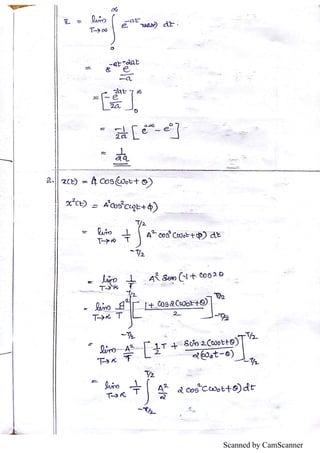 ∞
E = lim ∫ e^-at dt.
T→∞ 0
= e^-at e^-2at
-a
= [ - e^-2at / 2a ] ∞ 0
= - 1/2a [ e^-∞ - e^0 ]
= 1/2a
2. x(t) = A cos(ω0t + θ)
x²(t) = A²cos²(ω0t + φ)
= lim T→∞ 1/T ∫ T/2 -T/2 A² cos²(ω0t + φ) dt
= lim T→∞ 1/T A² (-1 + cos2θ
= lim T→∞ A²/T ∫ T/2 -T/2 [ 1 + cos 2(ω0t + θ) / 2 ] T/2 -T/2
= lim T→∞ A²/T [ 1/2 T + sin 2(ω0t + θ) / 2(ω0t - θ) ] T/2 -T/2
= lim T→∞ 1/T ∫ T/2 -T/2 A²/2 2 cos²(ω0t + θ) dt
Scanned by CamScanner